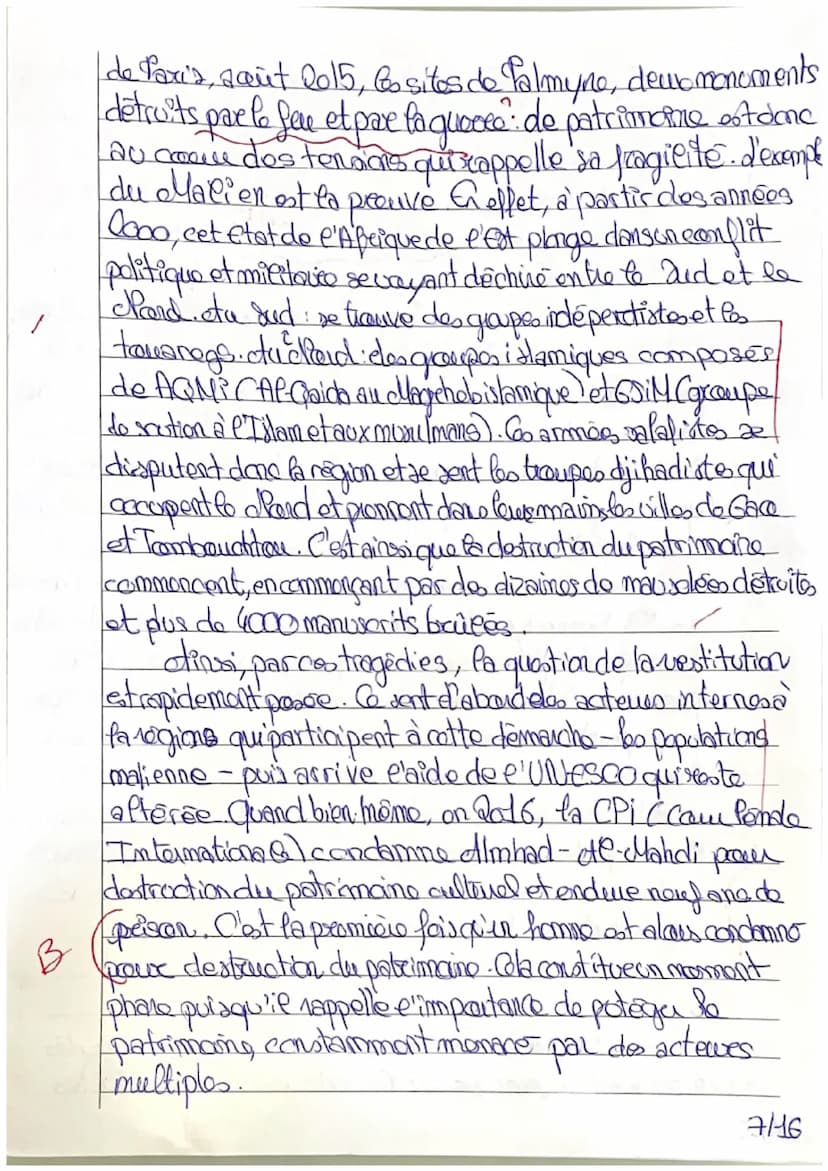 de Paris, août 2015, les sites de Palmyre, deux monuments
détruits par le feu et par la guerre ? : Le patrimoine est donc
au coeur des tensions qui rappelle sa fragilité. L'exemple
du Mali en est la preuve. En effet, à partir des années
2000, cet Etat de l'Afrique de l'Est plonge dans un conflit
politique et militaire se voyant déchiré entre le Sud et le
Nord. Au Sud : se trouve des groupes indépendistes et les
touaregs. Au Nord : des groupes islamiques composés
de AQMi (Al-Qaida au Maghreb islamique) et GSiM (groupe
de soution à l'Islam et aux musulmans). Les armées salafistes se
disputent donc la région et se sont les troupes djihadiste qui
occupent le Nord et prennent dans leurs mains les villes de Gao
et Tombouchtou. C'est ainsi que la destruction du patrimoine
commencent, en commençant par des dizaines de mausolées détruits
et plus de 4000 manuscrits brûlés.
Ainsi, par ces tragédies, la question de la restitution
est rapidement posée. Ce sont d'abord des acteurs internes à
la régions qui participent à cette démarche - les populations
malienne - puis arrive l'aide de l'UNESCO qui reste
altérée. Quand bien même, en 2016, la CPi (Cour Pénale
Internationale) condamne Almhad-Al-Mahdi pour
destruction du patrimoine culturel et endure neuf ans de
prison. C'est la première fois qu'un homme est alors condamné
B
pour destruction du patrimoine. Cela constitue un moment
phare puisqu'il rappelle l'importance de potéger le
patrimoine, constamment menacé par des acteurs
multiples.
7/16